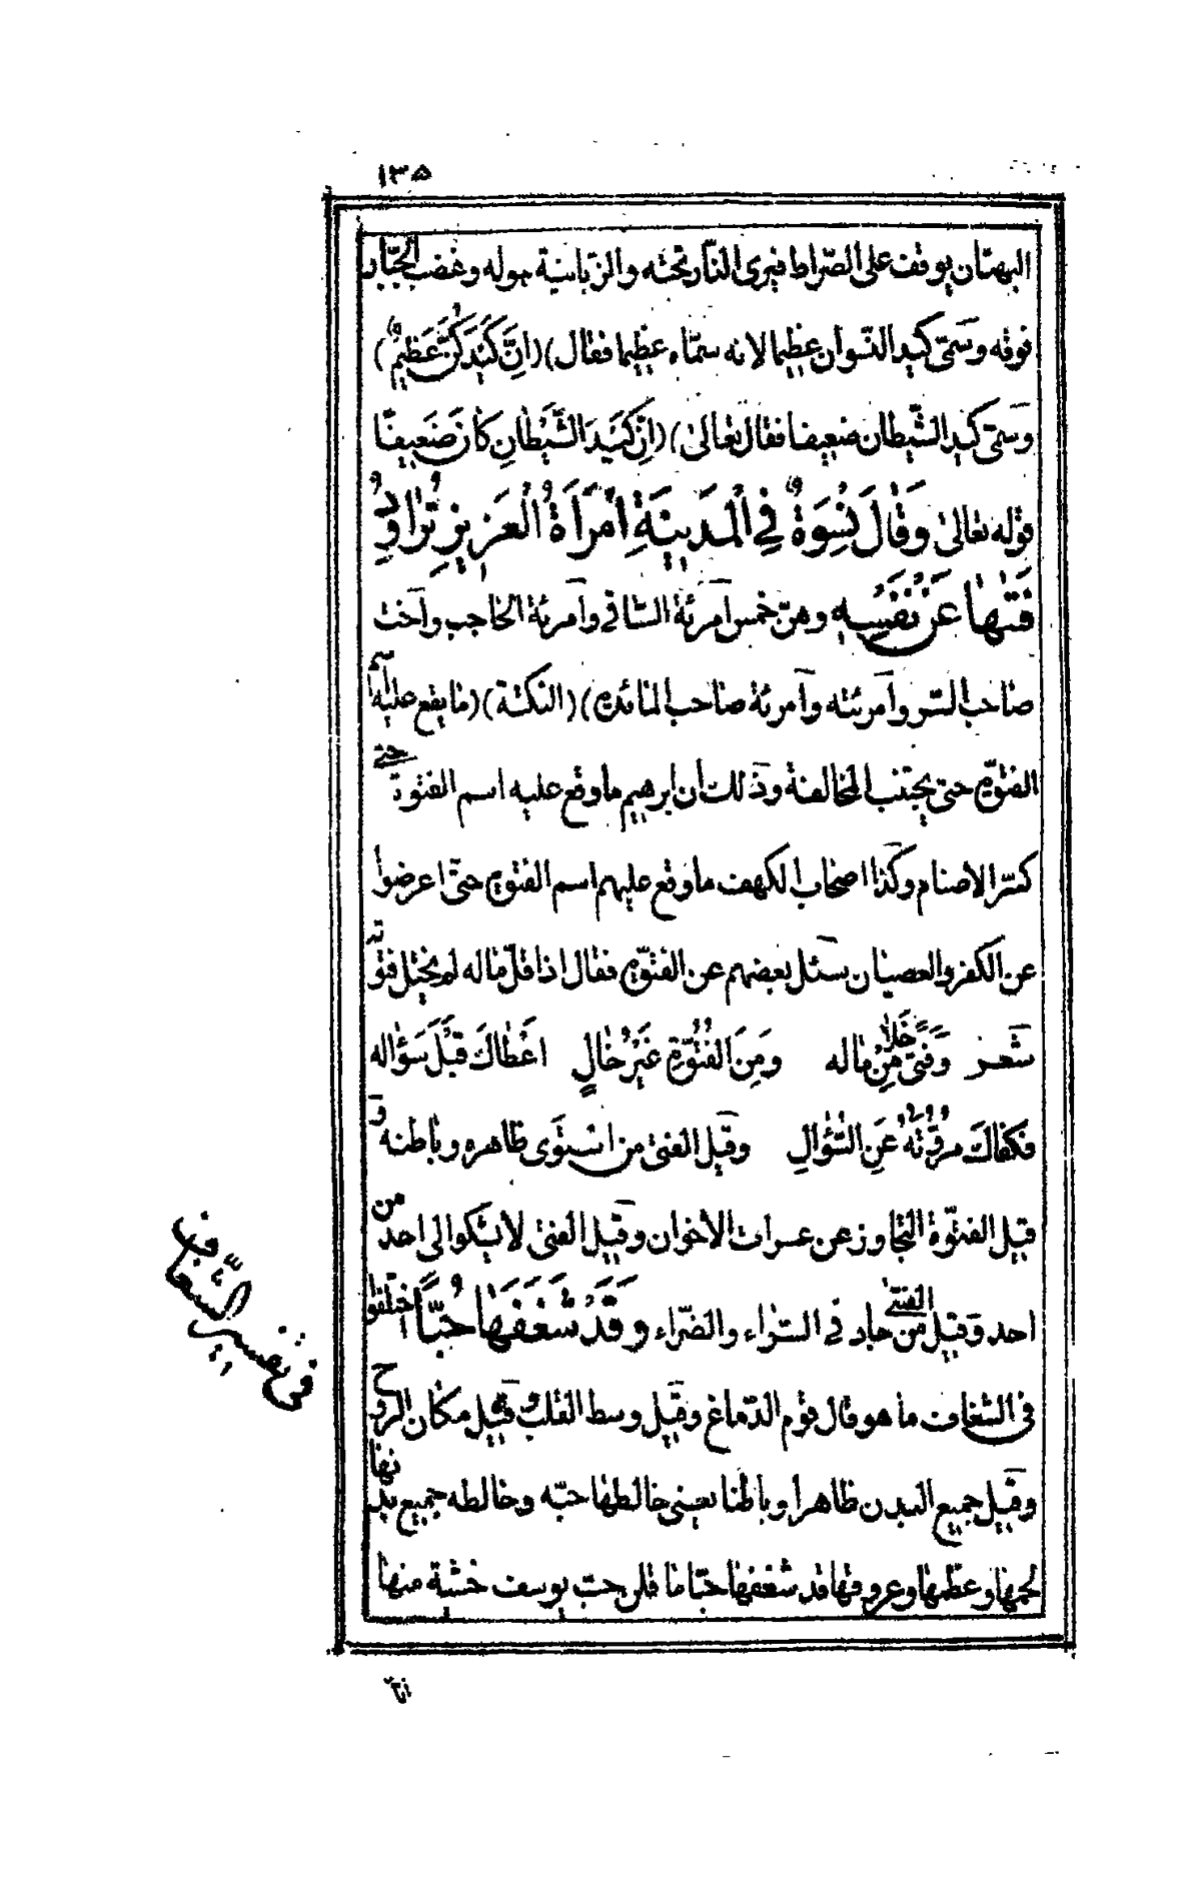 ١٣٥
البهتان يوقف على الصّراط فيرى النّار تحته والزّبانية حوله وغضب الجبّار
فوقه وسمّى كيد النّسوان عظيما لانه سمّاه عظيما فقال) (اِنَّ كَيْدَكُنَّ عَظِيمٌ)
وسمّى كيد الشّيطان ضعيفا فقال تعالى) (اِنَّ كَيْدَ الشَّيْطانِ كانَ ضَعيفًا
قوله تعالى وَقالَ نِسْوَةٌ فِي الْمَدينَةِ امْرَأَةُ الْعَزيزِ تُراوِدُ
فَتٰيها عَنْ نَفْسِهِ وهنّ خمس امرئة السّاقي وامرئة الحاجب واخت
صاحب السّر وامرئته وامرئة صاحب المائدة) (النكتة) (ما يقع عليه اسم
الفتوّة حتى يجتنب المخالفة وذلك ان ابرهيم ما وقع عليه اسم الفتوة حتى
كسّر الاصنام وكذا اصحاب الكهف ما وقع عليهم اسم الفتوة حتّى اعرضوا
عن الكفر والعصيان سئل بعضهم عن الفتوّة فقال اذا قلّ ماله لم يختل فتوته
شعر وَفَتىً خَلا مِنْ ماله وَمِنَ الفُتُوَّةِ غَيْرُ خالٍ اَعْطاكَ قَبْلَ سَؤاله
فكفاك مروّتُهُ عَنِ السُّؤالِ وقيل الفتى من استوى ظاهره وباطنه و
قيل الفتوّة التجاوز عن عسرات الاخوان وقيل الفتى لا يشكوا الى احد من
احد وقيل الفتى من جاد في السّراء والضّراء وَقَدْ شَغَفَهٰا حُبًّا اختلفوا
في الشغاف ما هو قال قوم الدّماغ وقيل وسط القلب وقيل مكان الروح
وقيل جميع البدن ظاهرا وباطنا يعني خالطها حبّه وخالطه جميع بدنها
لحمها وعظمها وعروقها قد شغفها حبّا ما قلن حبّ يوسف خشية منها
في تفسير الشّغاف